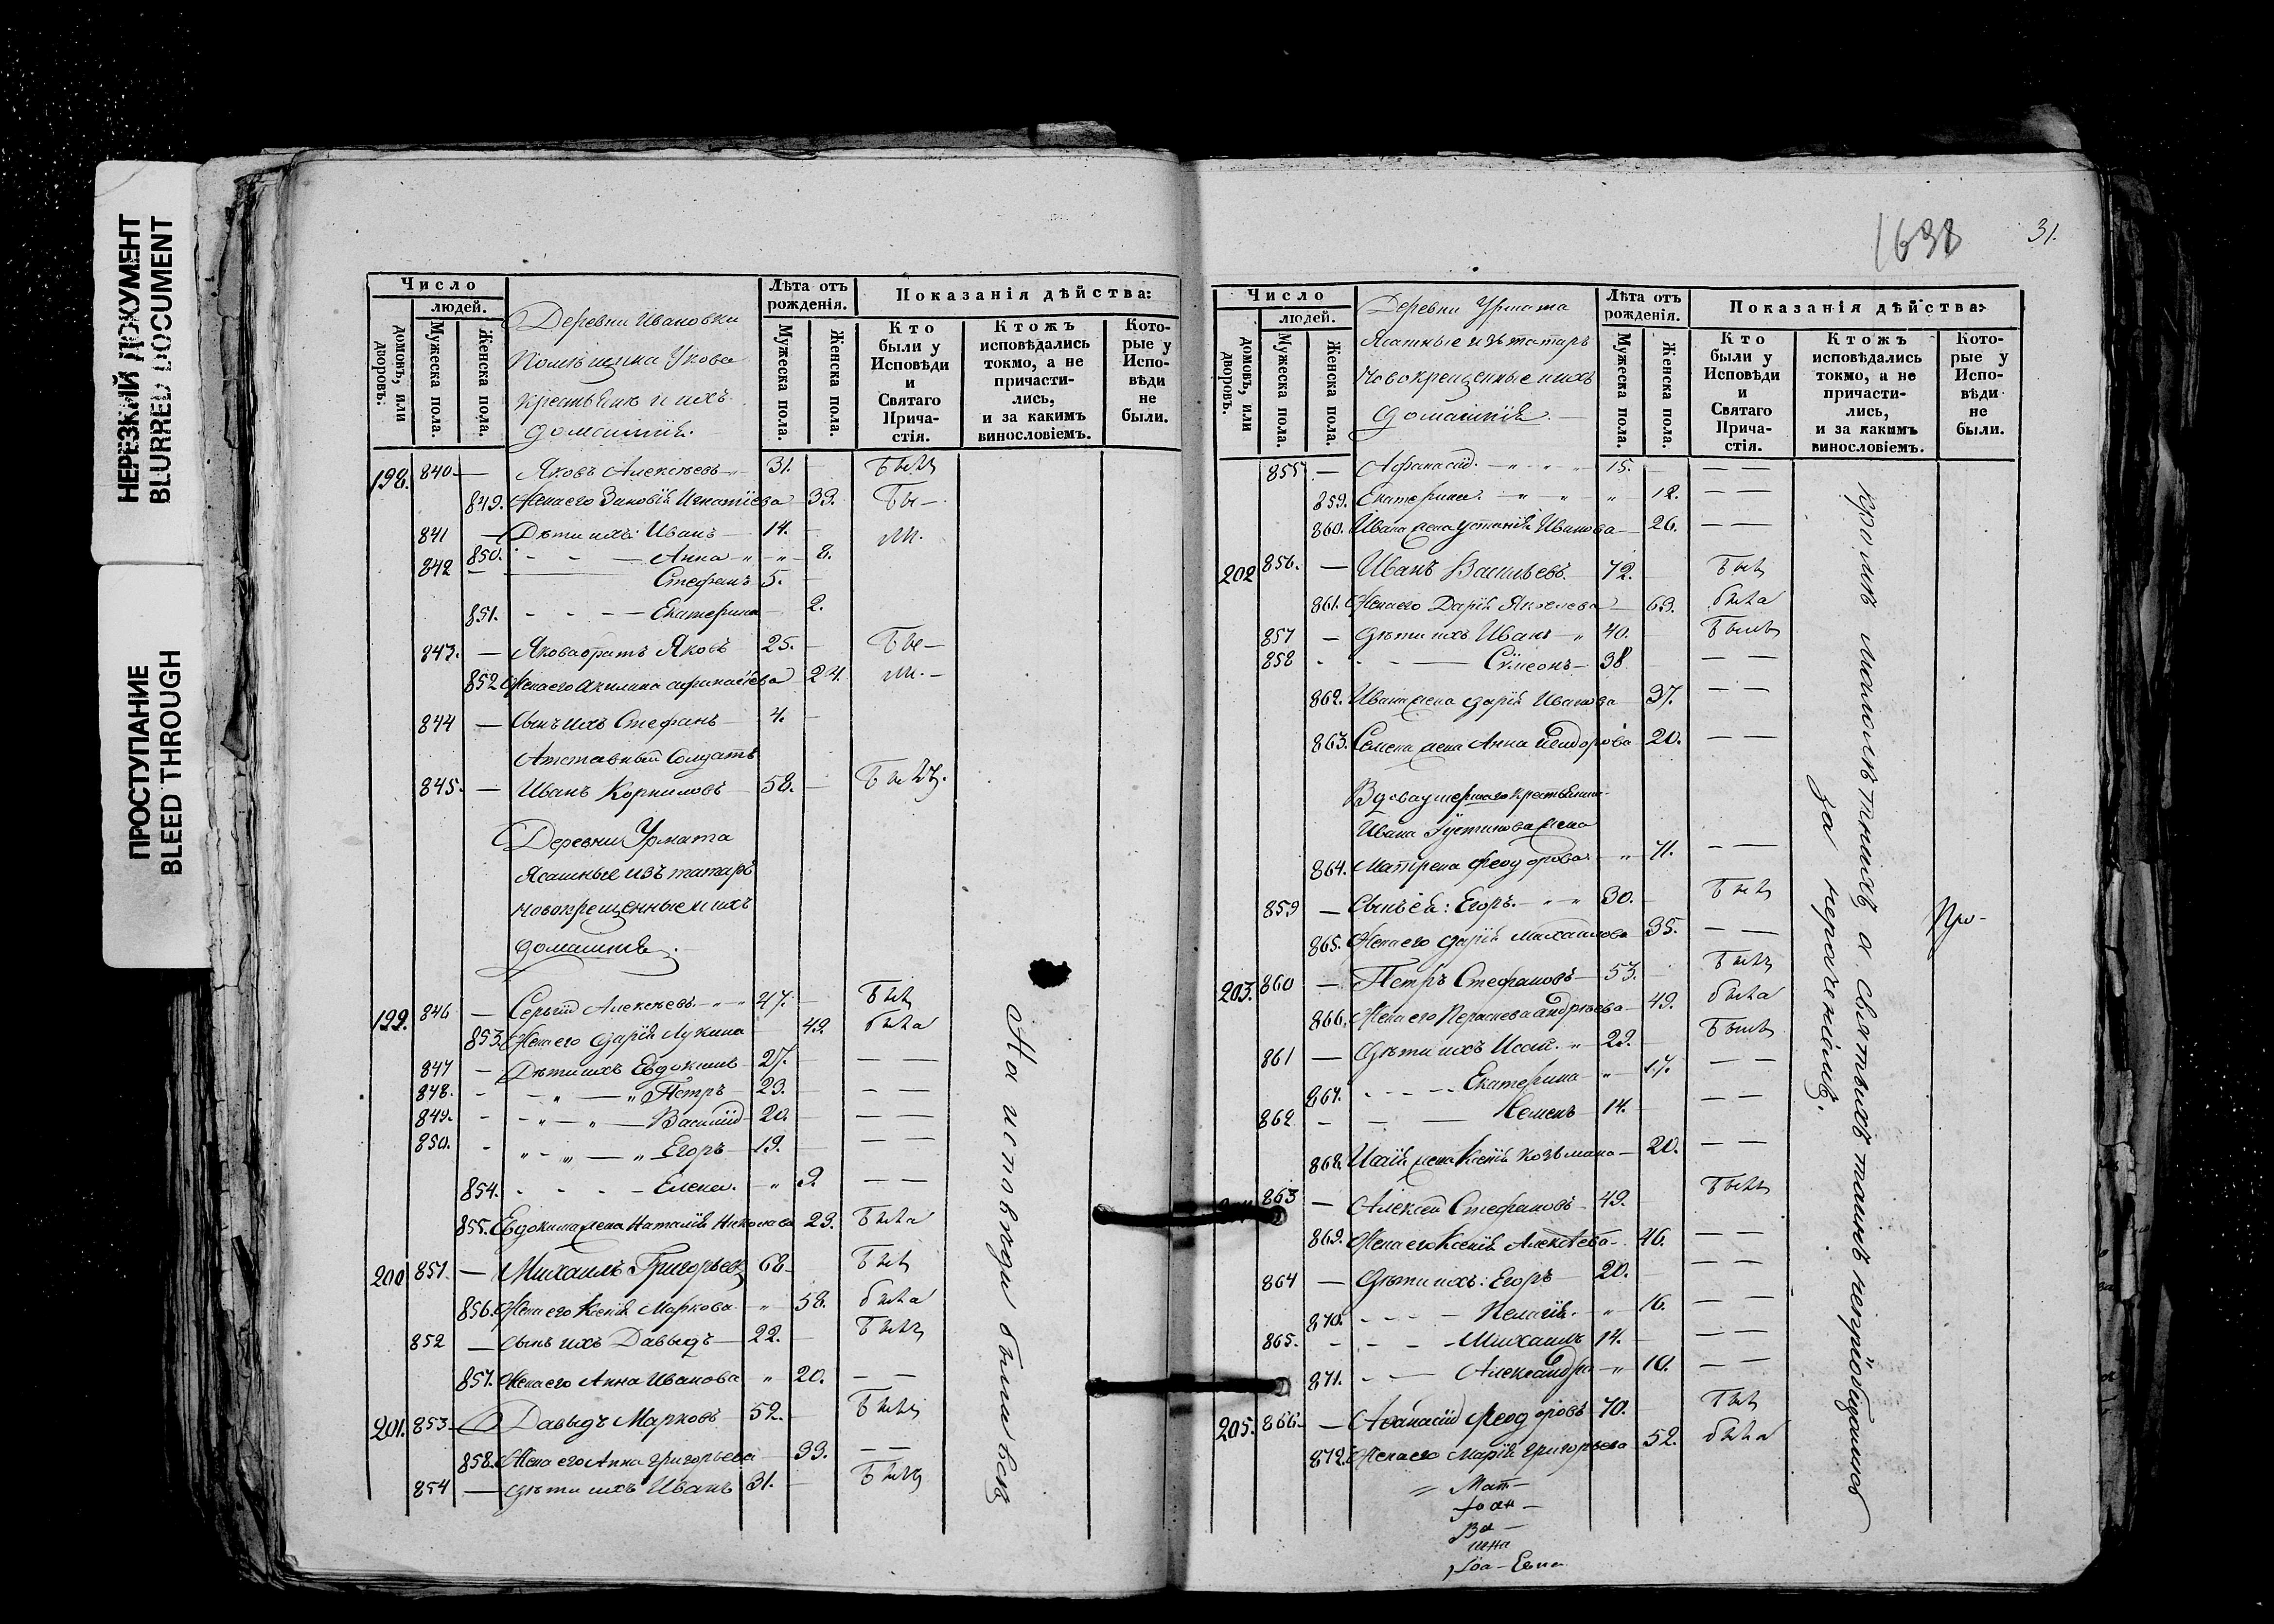 НЕРЕЗКИЙ ДОКУМЕНТ
BLURRED DOCUMENT
ПРОСТУПАНИЕ
BLEED THROUGH
Число
людей.
домовъ, или дворовъ.
Мужеска пола.
Женска пола.
Деревни Ивановки
Помѣщика
крестьяне и ихъ
домашнiе.
Лѣта отъ рожденія.
Мужеска пола.
Женска пола.
Показанія дѣйства:
Кто были у Исповѣди и Святаго Прича-стія.
Ктожъ исповѣдались токмо, а не причасти-лись, и за какимъ винословіемъ.
Кото-рые у Испо-вѣди не были.
198. 840 — Яковъ Алексѣевъ 31. — былъ
849. Жена его Зиновія Игнатіева 39. бы-
841 — Дѣти ихъ: Иванъ 14. — ли.
850. - - — Анна „ - „ - 8.
842 — Стефанъ 5. —
851. - - - — Екатерина 2.
843. — Якова братъ Яковъ 25. — Бы—
852 Жена его Акилина Афанасіева 24. ли. —
844 — Сынъ ихъ Стефанъ 4. —
Атставный Солдатъ
845. — Иванъ Корниловъ 58. — былъ.
Деревни Урмата
Ясашные изъ татаръ
новокрещенные и ихъ
домашнiе.
199. 846 — Сергій Алексѣевъ 47. — былъ
853. Жена его Дарія Лукина 49 была
847 — Дѣти ихъ Евдокимъ 27. — —
848. - - „ — „ Петръ 23. — —
849. - - „ — „ — Василій 20. — —
850. - „ - „ — „ Егоръ 19. — —
854. - - - - Елена. - „ 9. — —
855. Евдокима жена Наталія Николаева 29. была
200 851. — Михаилъ Григорьевъ 68 былъ
856. Жена его Ксенія Маркова „ 58. была
852 — сынъ ихъ Давыдъ 22. былъ
857. Жена его Анна Иванова „ 20. — —
201. 853 — Давыдъ Марковъ 52. — былъ
858. Жена его Анна Григорьева 33. — —
854 — Дѣти ихъ Иванъ 31. — былъ
На исповѣди былъ
1638
31.
Число
людей.
домовъ, или дворовъ.
Мужеска пола.
Женска пола.
Деревни Урмата
Ясашные изъ татаръ
Новокрещенные и ихъ
домашнiе
Лѣта отъ рожденія.
Мужеска пола.
Женска пола.
Показанія дѣйства:
Кто были у Исповѣди и Святаго Прича-стія.
Ктожъ исповѣдались токмо, а не причасти-лись, и за какимъ винословіемъ.
Кото-рые у Испо-вѣди не были.
855 — Афанасій. — „ - „ 15. — —
859. Екатерина. — „ — „ „ 12. — —
860. Ивана жена Устинія Иванова 26. — —
202 856. — Иванъ Васильевъ 72. былъ
861. Жена его Дарія Яковлева 69. была
857 — Дѣти ихъ Иванъ „ 40. были
858 - - — Сѵмеонъ 38. — —
862. Ивана жена Дарія Иванова 37. — —
863. Семена жена Анна Ѳеодорова 20. — —
Вдова умершаго крестьянина
Ивана Густинова жена
864. Матрена Феодорова „ 71. — —
859 — Сынъ ея: Егоръ. - „ „ 30. былъ
865. Жена его Дарія Михаилова 35. — —
203. 860 — Петръ Стефановъ 53. былъ
866. Жена его Параскева Андрѣева 49. была
861 — Дѣти ихъ Исаій. „ 29. были
867. - - - - Екатерина „ 17. — —
862 - — — Семенъ 14. — —
868. Исаія жена Ксенія Козьмина 20. — —
863 — Алексѣй Стефановъ 49. былъ
869. Жена его Ксенія Алексѣева 46. — —
864 — Дѣти ихъ: Егоръ 20. — —
870. - - - - Пелагія. - „ 16. — —
865. - - - - Михаилъ 14. — —
871. - — Александра „ 10. — —
205. 866. — Аѳанасій Феодоровъ 70. былъ
872. Жена его Марія Григорьева 52. была
„ Мат—
Іоан —
Ва —
шна
кромѣ и святыхъ таинъ
за нерачѣніемъ.